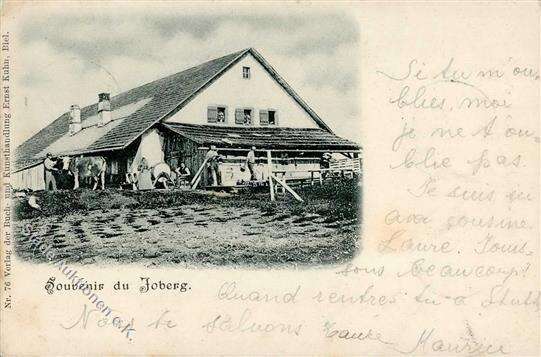 Nr. 76 Verlag der Buch- und Kunsthandlung Ernst Kuhn, Biel.
Si tu m'ou-
blies, moi
je ne t'ou-
blie pas.
Je suis
cousine
Laure.
beaucoup
Souvenir du Joberg.
Quand rentres tu à
Nous te saluons
Laure Maurice